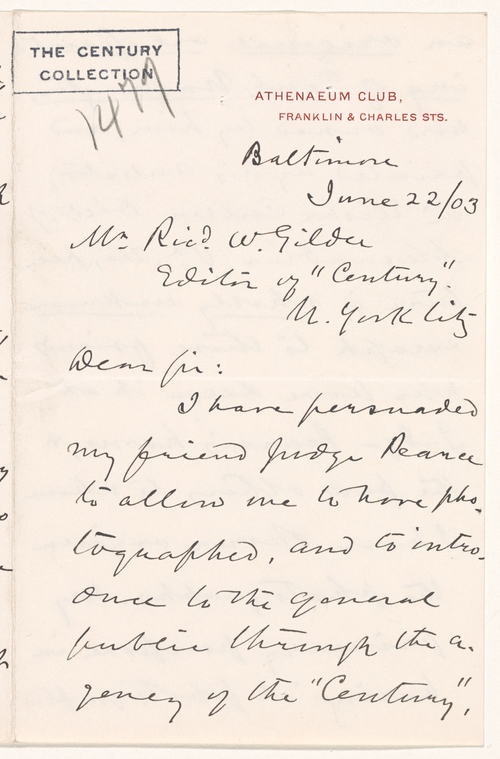 THE CENTURY
COLLECTION
1477
ATHENAEUM CLUB,
FRANKLIN & CHARLES STS.
Baltimore
June 22/03
Mr. Ricd. W. Gilder
Editor of "Century".
N. York City
Dear Sir:
I have persuaded
my friend Judge Pearce
to allow me to have pho-
tographed, and to intro-
duce to the general
public through the a-
gency of the "Century",